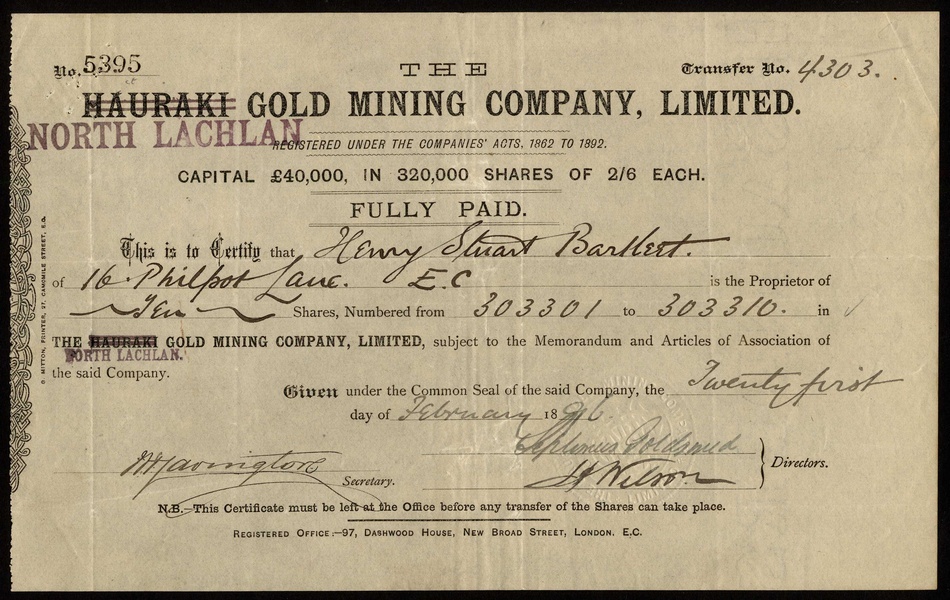 No. 5395
THE
Transfer No. 4303.
HAURAKI GOLD MINING COMPANY, LIMITED.
NORTH LACHLAN
REGISTERED UNDER THE COMPANIES' ACTS, 1862 TO 1892.
CAPITAL £40,000, IN 320,000 SHARES OF 2/6 EACH.
FULLY PAID.
This is to Certify that Henry Stuart Bartlett.
of 16. Philpot Lane. E.C is the Proprietor of
Ten Shares, Numbered from 303301 to 303310. in
THE HAURAKI GOLD MINING COMPANY, LIMITED, subject to the Memorandum and Articles of Association of
NORTH LACHLAN.
the said Company.
Given under the Common Seal of the said Company, the Twenty first
day of February 1896.
Septimus Goldsmid
Secretary.
Wilson
Directors.
N.B.—This Certificate must be left at the Office before any transfer of the Shares can take place.
REGISTERED OFFICE:—97, DASHWOOD HOUSE, NEW BROAD STREET, LONDON. E.C.
MITTON, PRINTER, 27, CAMOMILE STREET, E.C.